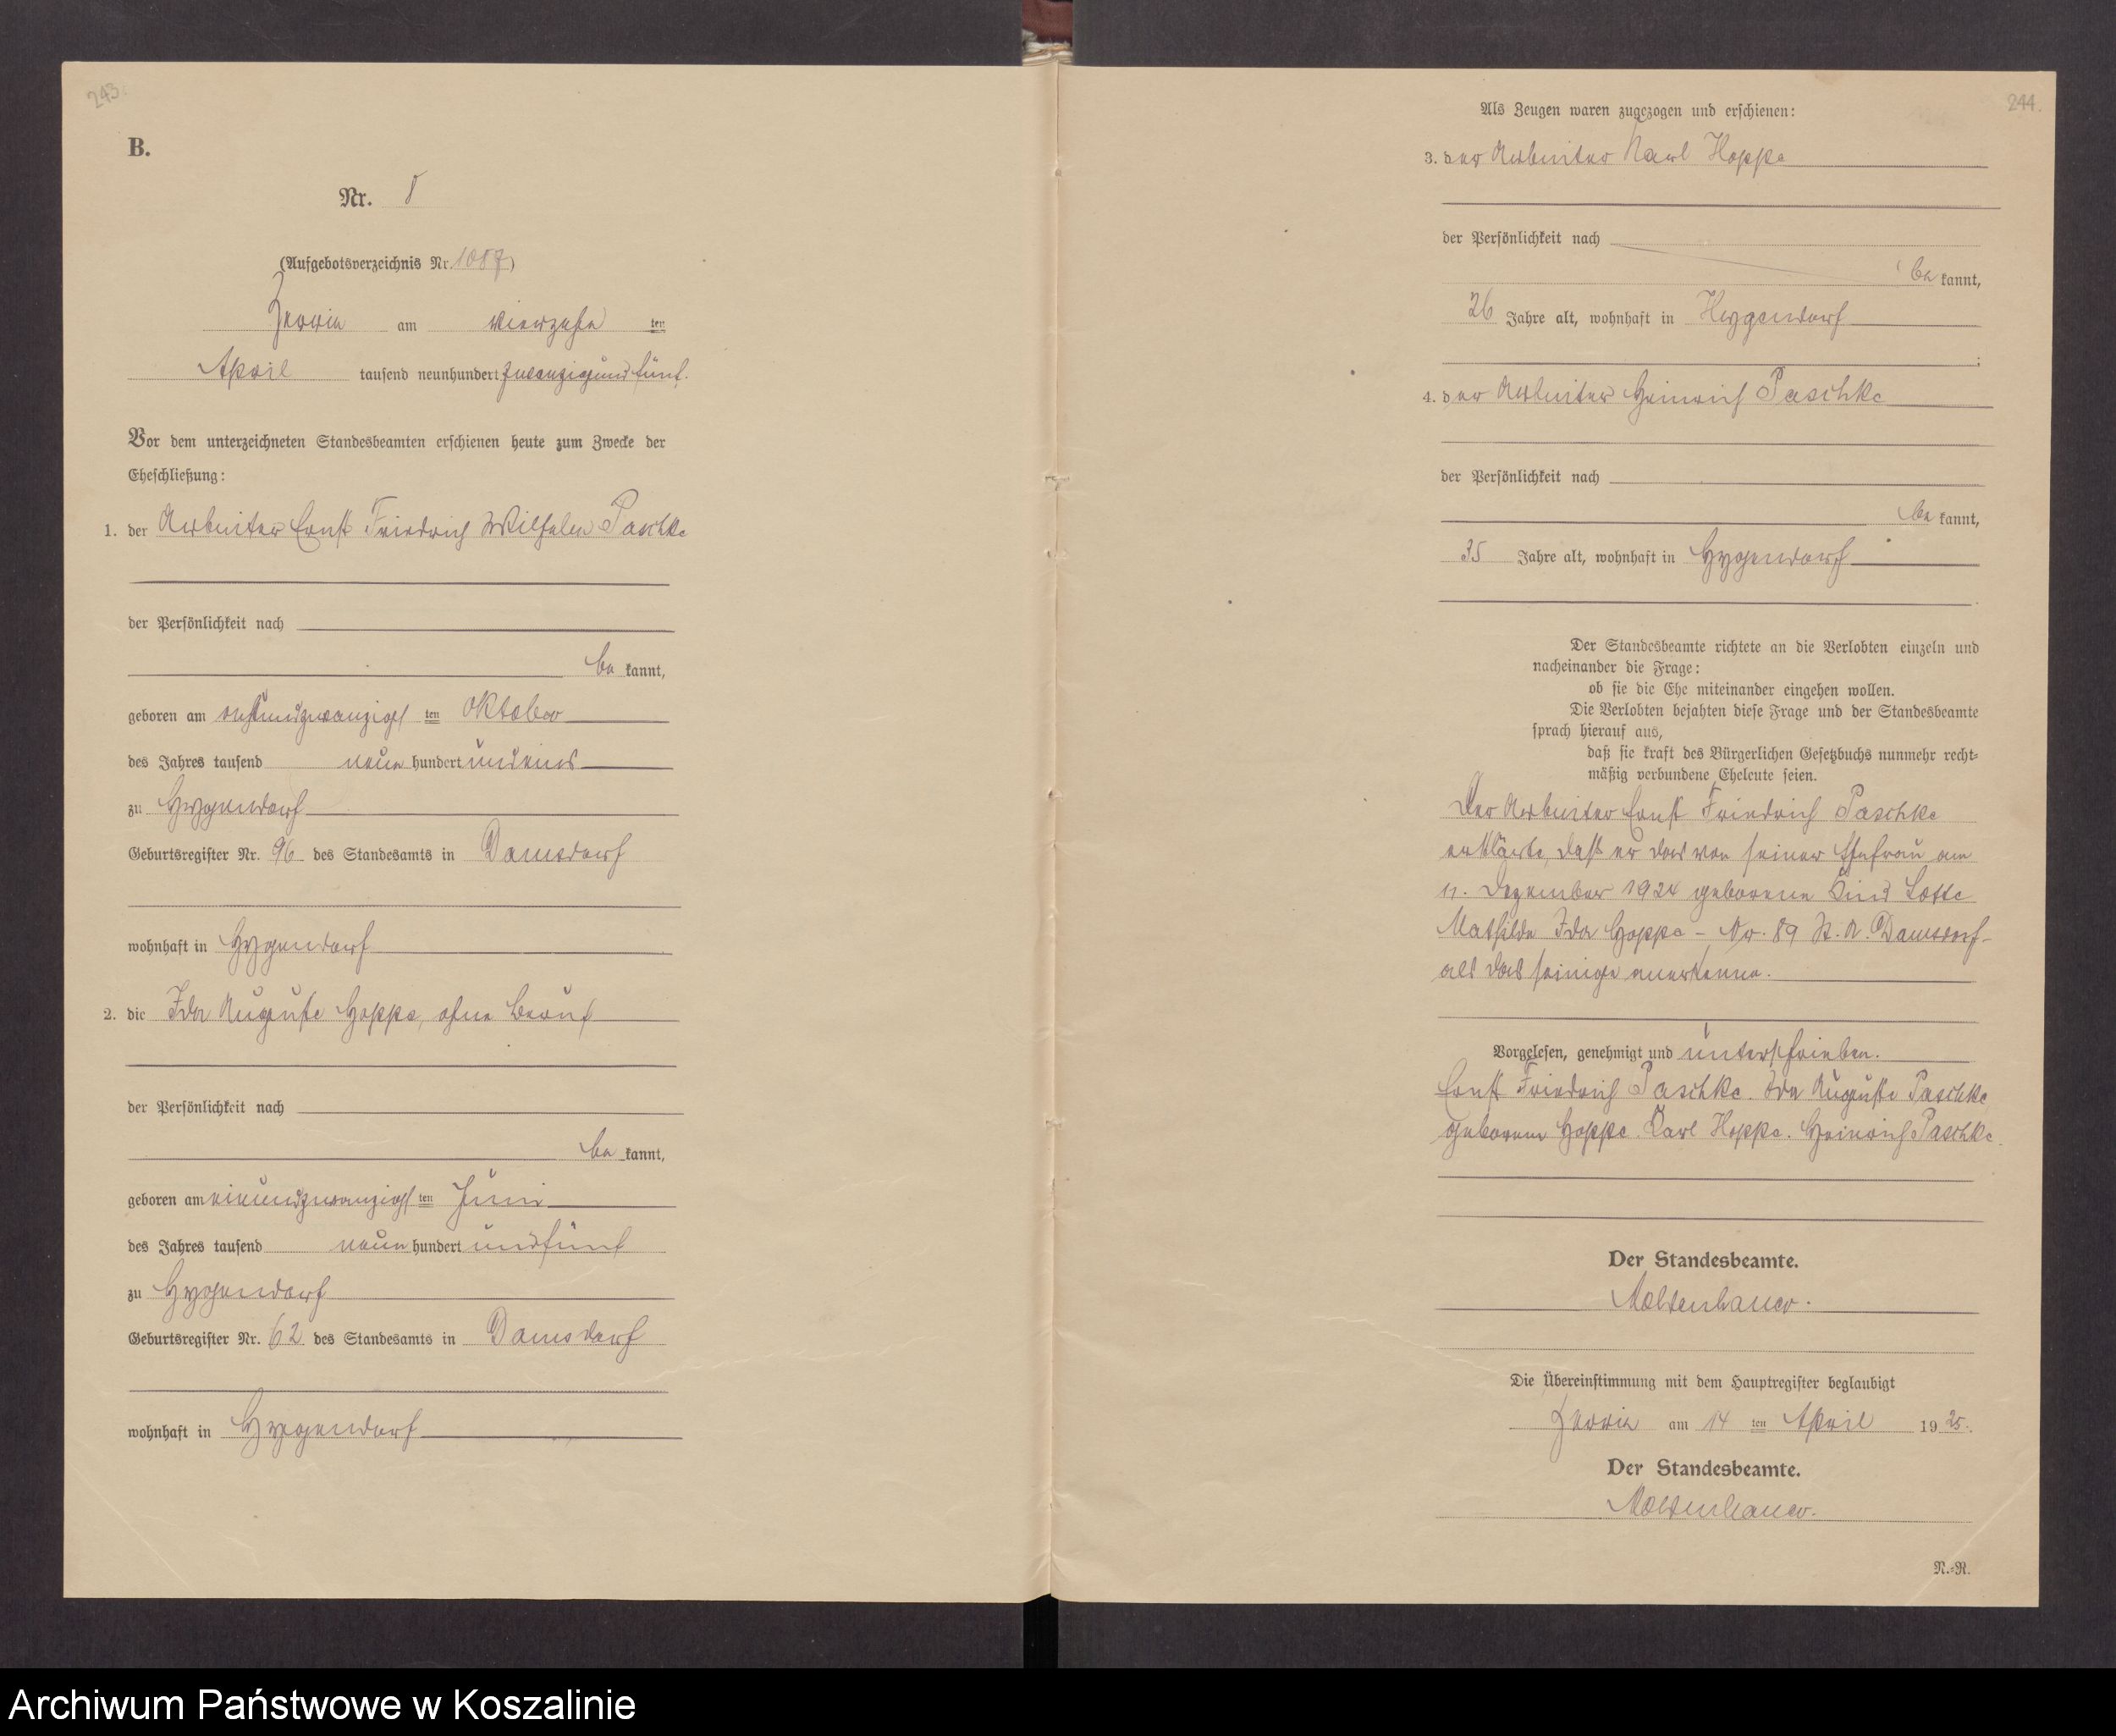 243.
B.
Nr. 8
(Aufgebotsverzeichnis Nr. 1087)
Jerrin am vierzehn ten
April tausend neunhundert zwanzigundfünf.
Vor dem unterzeichneten Standesbeamten erschienen heute zum Zwecke der
Eheschließung:
1. der Arbeiter Ernst Friedrich Wilhelm Paschke
der Persönlichkeit nach
be kannt,
geboren am achtundzwanzigs ten Oktober
des Jahres tausend neun hundert undeins
zu Hygendorf
Geburtsregister Nr. 96 des Standesamts in Damsdorf
wohnhaft in Hygendorf
2. die Ida Auguste Hoppe, ohne Beruf
der Persönlichkeit nach
be kannt,
geboren am einundzwanzigs ten Juni
des Jahres tausend neun hundert undfünf
zu Hygendorf
Geburtsregister Nr. 62 des Standesamts in Damsdorf
wohnhaft in Hygendorf
244.
Als Zeugen waren zugezogen und erschienen:
3. der Arbeiter Karl Hoppe
der Persönlichkeit nach
be kannt,
26 Jahre alt, wohnhaft in Hygendorf
;
4. der Arbeiter Heinrich Paschke
der Persönlichkeit nach
be kannt,
35 Jahre alt, wohnhaft in Hygendorf
Der Standesbeamte richtete an die Verlobten einzeln und
nacheinander die Frage:
ob sie die Ehe miteinander eingehen wollen.
Die Verlobten bejahten diese Frage und der Standesbeamte
sprach hierauf aus,
daß sie kraft des Bürgerlichen Gesetzbuchs nunmehr recht-
mäßig verbundene Eheleute seien.
Der Arbeiter Ernst Friedrich Paschke
erklärte, daß er das von seiner Ehefrau am
11. Dezember 1924 geborene Kind Lotte
Mathilde Ida Hoppe - Nr. 89 St. A. Damsdorf -
als das seinige anerkenne.
Vorgelesen, genehmigt und unterschrieben.
Ernst Friedrich Paschke. Ida Auguste Paschke
geborene Hoppe. Karl Hoppe. Heinrich Paschke.
Der Standesbeamte.
Moldenhauer.
Die Übereinstimmung mit dem Hauptregister beglaubigt
Jerrin am 14 ten April 19 25.
Der Standesbeamte.
Moldenhauer.
N.-R.
Archiwum Państwowe w Koszalinie